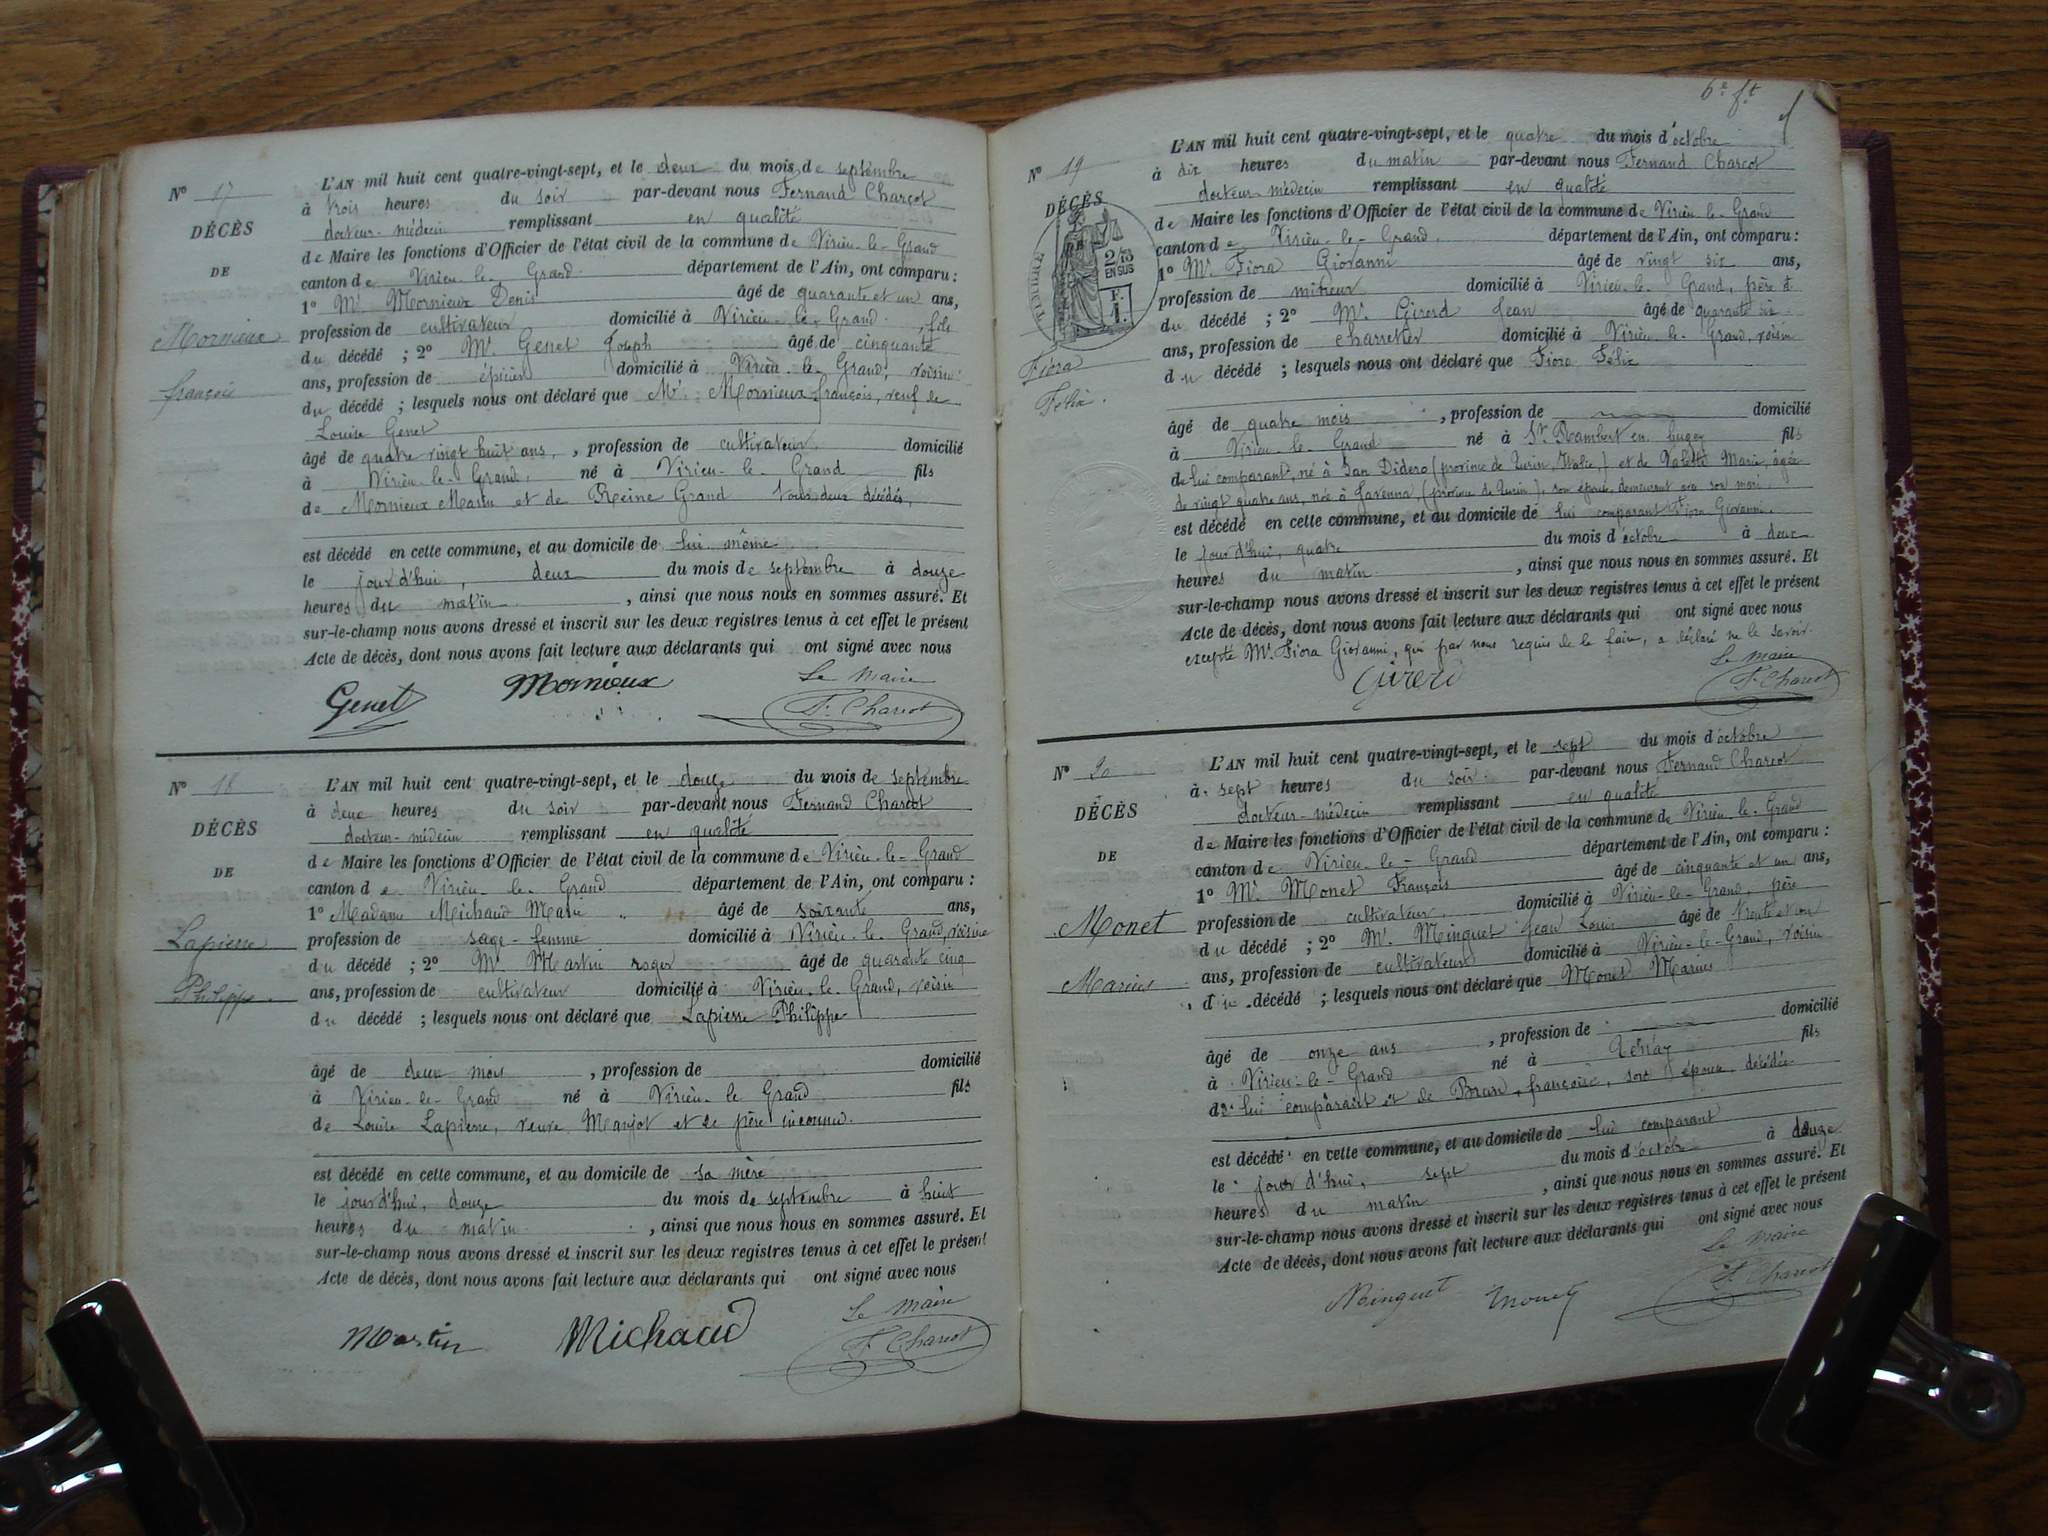 Nº 17
DÉCÈS
DE
Mornieux
françois
L'AN mil huit cent quatre-vingt-sept, et le deux du mois de septembre
à trois heures du soir par-devant nous Fernand Charcot
docteur-médecin remplissant en qualité
de Maire les fonctions d'Officier de l'état civil de la commune de Virieu-le-Grand
canton de Virieu-le-Grand département de l'Ain, ont comparu :
1º Mr. Mornieux Denis âgé de quarante et un ans,
profession de cultivateur domicilié à Virieu-le-Grand, fils
du décédé ; 2º Mr. Genet Joseph âgé de cinquante
ans, profession de épicier domicilié à Virieu-le-Grand, voisin
du décédé ; lesquels nous ont déclaré que Mr. Mornieux françois, veuf de
Louise Genet
âgé de quatre vingt huit ans, profession de cultivateur domicilié
à Virieu-le-Grand, né à Virieu-le-Grand fils
de Mornieux Marin et de Reine Grand tous deux décédés,
est décédé en cette commune, et au domicile de lui même
le jour d'hui, deux du mois de septembre à douze
heures du matin, ainsi que nous nous en sommes assuré. Et
sur-le-champ nous avons dressé et inscrit sur les deux registres tenus à cet effet le présent
Acte de décès, dont nous avons fait lecture aux déclarants qui ont signé avec nous
Genet Mornieux Le Maire
F. Charcot
Nº 18
DÉCÈS
DE
Lapierre
Philippe
L'AN mil huit cent quatre-vingt-sept, et le douze du mois de septembre
à deux heures du soir par-devant nous Fernand Charcot
docteur-médecin remplissant en qualité
de Maire les fonctions d'Officier de l'état civil de la commune de Virieu-le-Grand
canton de Virieu-le-Grand département de l'Ain, ont comparu :
1º Madame Michaud Marie âgé de soixante ans,
profession de sage-femme domicilié à Virieu-le-Grand, voisine
du décédé ; 2º Mr. Martin roger âgé de quarante cinq
ans, profession de cultivateur domicilié à Virieu-le-Grand, voisin
du décédé ; lesquels nous ont déclaré que Lapierre Philippe
âgé de deux mois, profession de domicilié
à Virieu-le-Grand né à Virieu-le Grand fils
de Louise Lapierre, veuve Manjot et de père inconnu.
est décédé en cette commune, et au domicile de sa mère
le jour d'hui, douze du mois de septembre à huit
heures du matin, ainsi que nous nous en sommes assuré. Et
sur-le-champ nous avons dressé et inscrit sur les deux registres tenus à cet effet le présent
Acte de décès, dont nous avons fait lecture aux déclarants qui ont signé avec nous
Martin Michaud Le Maire
F. Charcot
6e ft
Nº 19
DÉCÈS
DE
2/10
EN SUS
F.
1.
Fiora
Félix.
L'AN mil huit cent quatre-vingt-sept, et le quatre du mois d'octobre
à dix heures du matin par-devant nous Fernand Charcot
docteur médecin remplissant en qualité
de Maire les fonctions d'Officier de l'état civil de la commune de Virieu-le-Grand
canton de Virieu-le-Grand département de l'Ain, ont comparu :
1º Mr. Fiora Giovanni âgé de vingt six ans,
profession de mineur domicilié à Virieu-le-Grand, père
du décédé ; 2º Mr. Girerd Jean âgé de quarante six
ans, profession de charretier domicilié à Virieu-le-Grand, voisin
du décédé ; lesquels nous ont déclaré que Fiora Félix
âgé de quatre mois, profession de domicilié
à Virieu-le-Grand né à St. Rambert en bugey fils
de lui comparant, né à San Didero (province de Turin, Italie,) et de Marie, âgée
de vingt quatre ans, née à (province de Turin), son épouse demeurant avec son mari.
est décédé en cette commune, et au domicile de lui comparant Fiora Giovanni.
le jour d'hui, quatre du mois d'octobre à deux
heures du matin, ainsi que nous nous en sommes assuré. Et
sur-le-champ nous avons dressé et inscrit sur les deux registres tenus à cet effet le présent
Acte de décès, dont nous avons fait lecture aux déclarants qui ont signé avec nous
excepté Mr. Fiora Giovanni, qui par nous requis de le faire, a déclaré ne le savoir.
Girerd Le Maire
F. Charcot
Nº 20
DÉCÈS
DE
Monet
Marius
L'AN mil huit cent quatre-vingt-sept, et le sept du mois d'octobre
à sept heures du soir par-devant nous Fernand Charcot
docteur-médecin remplissant en qualité
de Maire les fonctions d'Officier de l'état civil de la commune de Virieu-le-Grand
canton de Virieu-le-Grand département de l'Ain, ont comparu :
1º Mr. Monet François âgé de cinquante et un ans,
profession de cultivateur domicilié à Virieu-le-Grand, père
du décédé ; 2º Mr. Minguet Jean Louis âgé de trente et un
ans, profession de cultivateur domicilié à Virieu-le-Grand, voisin
du décédé ; lesquels nous ont déclaré que Monet Marius
âgé de onze ans, profession de domicilié
à Virieu-le-Grand né à Tenay fils
de lui comparant et de françoise, son épouse décédée
est décédé en cette commune, et au domicile de lui comparant
le jour d'hui, sept du mois d'octobre à douze
heures du matin, ainsi que nous nous en sommes assuré. Et
sur-le-champ nous avons dressé et inscrit sur les deux registres tenus à cet effet le présent
Acte de décès, dont nous avons fait lecture aux déclarants qui ont signé avec nous
Minguet Monet Le Maire
F. Charcot